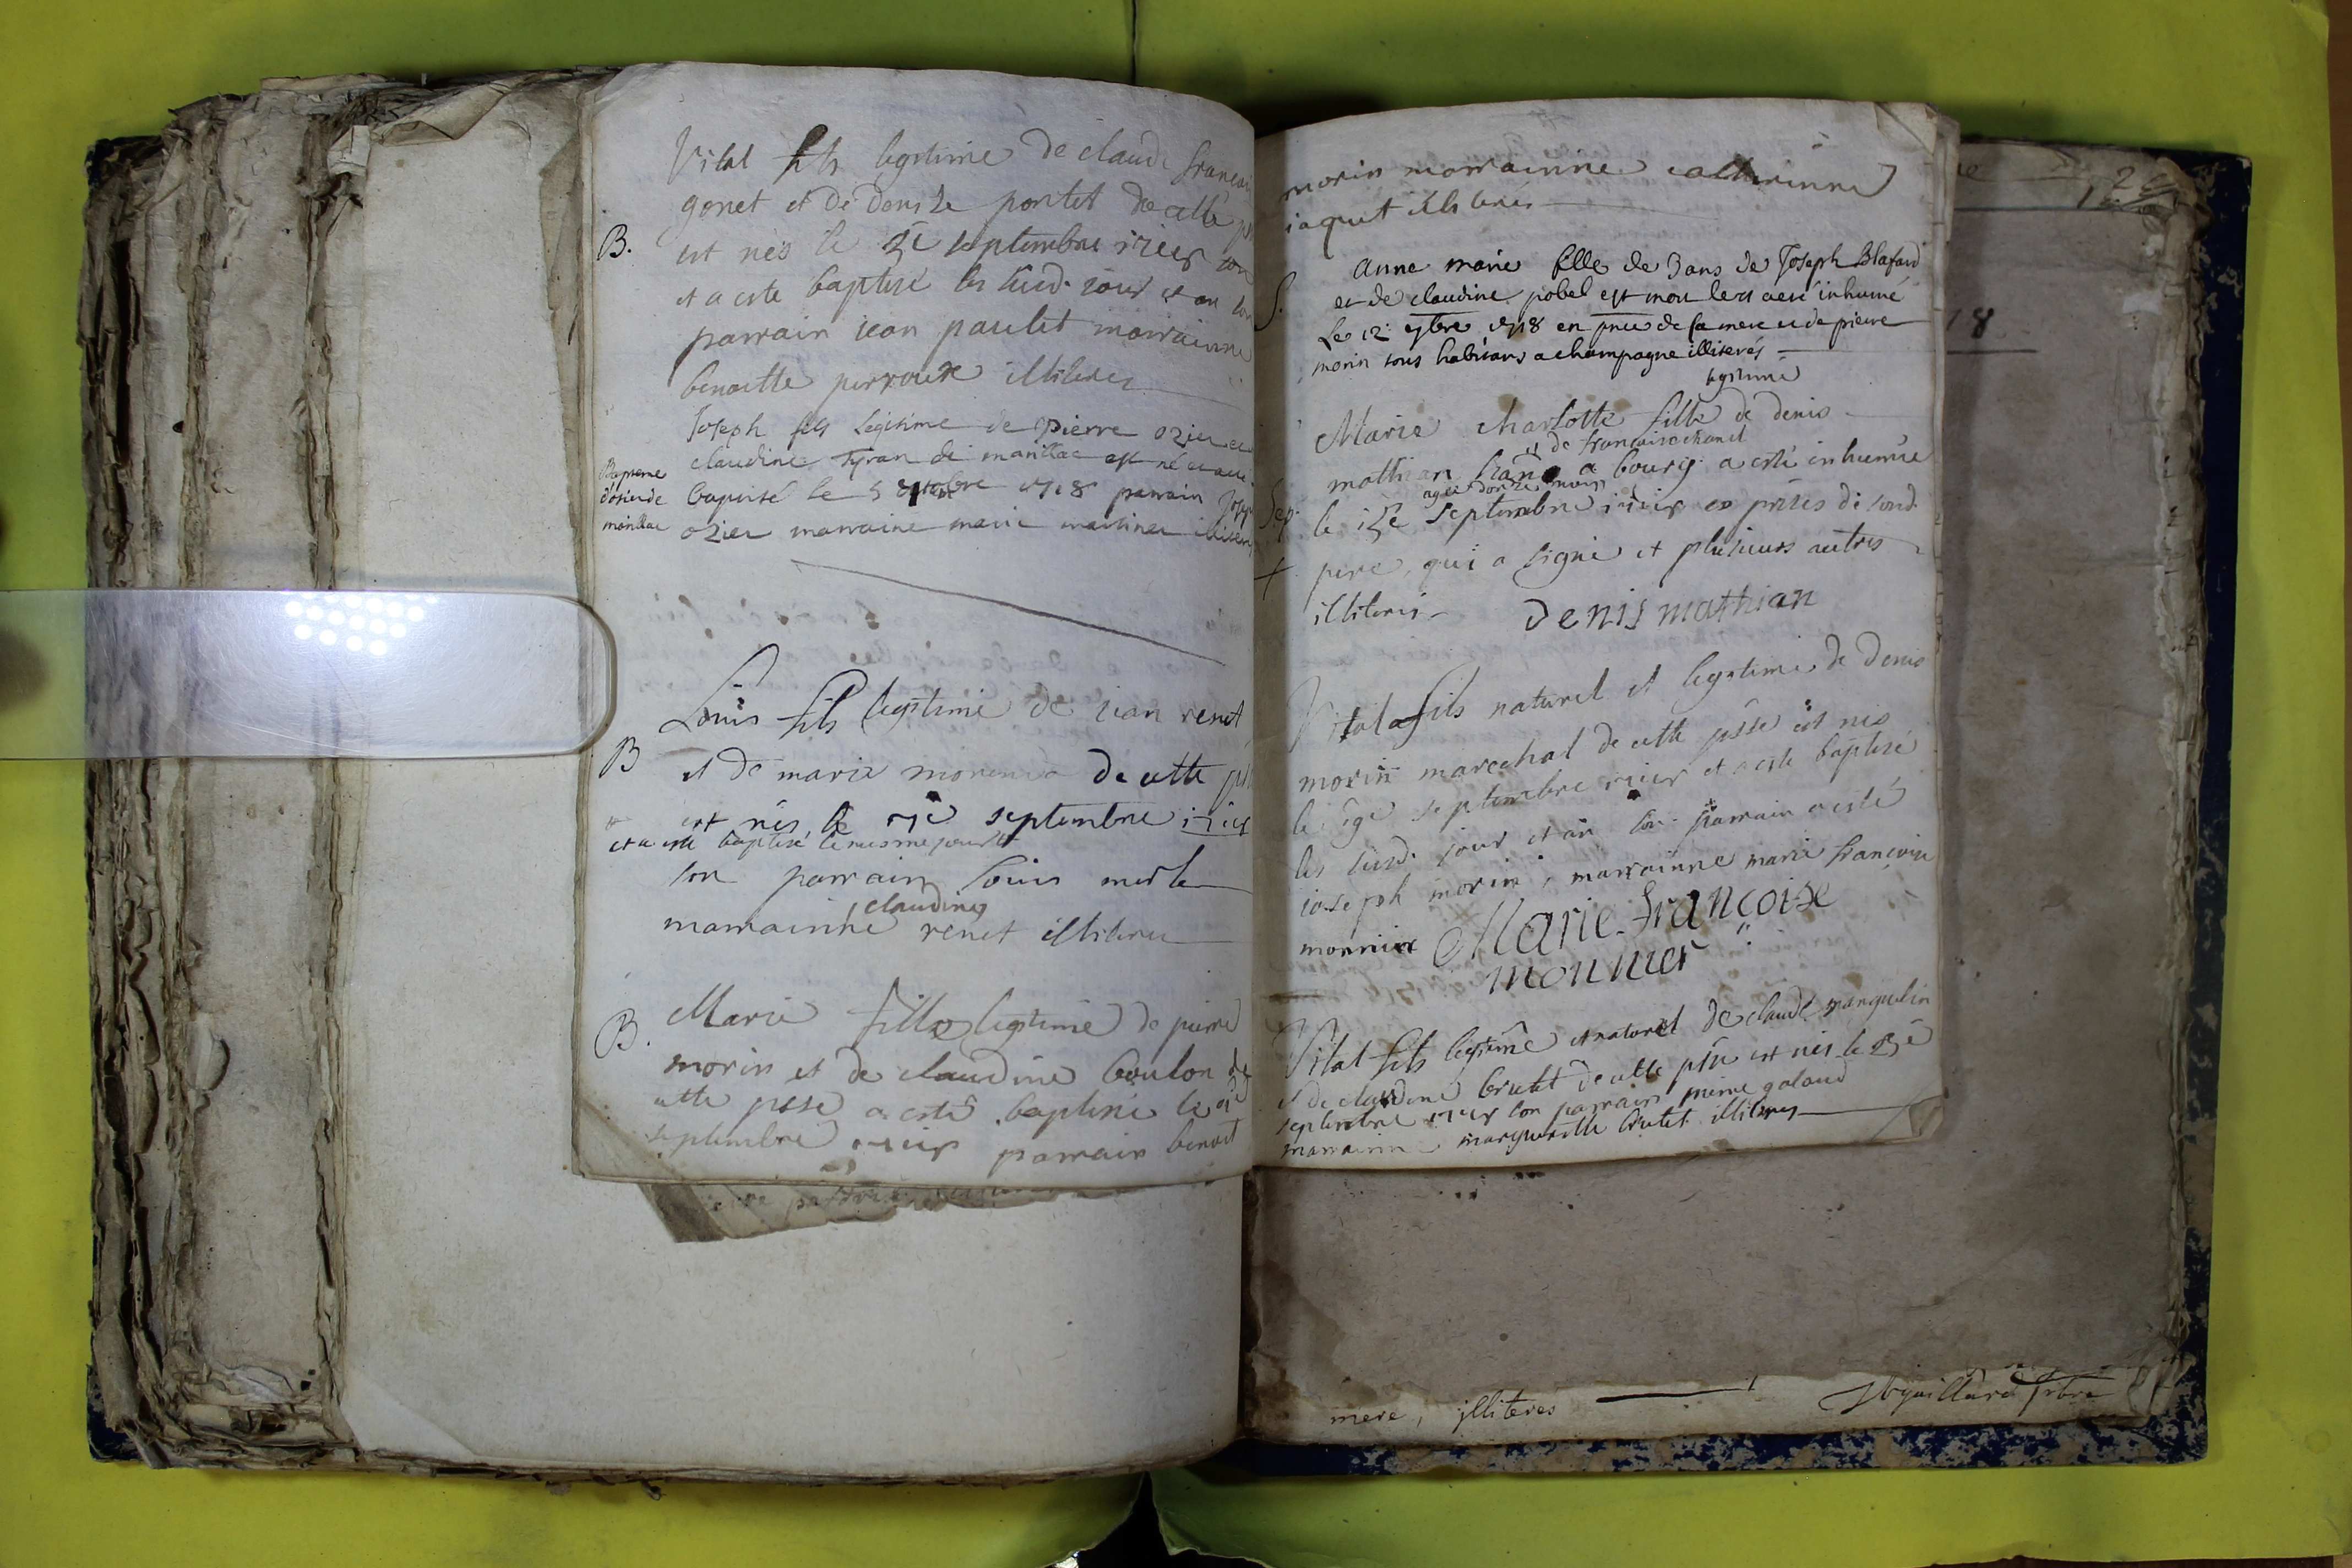 Vital fils legitime de claude francoi
gonet et de denise pontet de cette p
B.
est nes le 5e septembre
et a este baptisé les susd. jour et an
parrain jean paulet marrainne
benoitte perroux illiteres
Joseph fils legitime de pierre ozier et
claudine Tyran de marillac est né et a été
Bapteme
d'osier de
marillac
baptisé le 5 1718 parrain Josep
ozier marraine marie martinet illiteres
Louis fils legitime de jean renet
B
et de marie de cette
est nes le septembre
et a esté baptisé le mesme jour
son parrain louis merle
claudine
marrainne renet illiteres
B.
Marie fille legitime de pierre
morin et de claudine boulon de
cette psse a esté baptisée le
septembre parrain benoit
morin marrainne catherinne
jaquet illiterés
S.
anne marie fille de 3 ans de Joseph Blafard
et de claudine pobel est morte et a esté inhumé
Le 12 7bre 1718 en pnce de sa mere et de pierre
morin tous habitans a champagne illiterés
legitime
Marie charlotte fille de denis
et de francoise chanel
mathian a bourg a esté inhumée
agee d'onze mois
Sep.
le septembre en pntes de sond.
+
pere, qui a signé et plusieurs autres
illiterés
denis mathian
Vital fils naturel et legitime de denis
morin marechal de cette psse est nes
le septembre et a este baptisé
les susd. jour et an son parrain a esté
joseph morin, marrainne marie françoise
monnier
Marie francoise
monnier
Vital fils legitime et naturel de claude mangulin
et de claudine brulet de cette psse est nes le
septembre son parrain pierre galaud
marrainne marguerite brulet illiteres
18
mere, illiteres